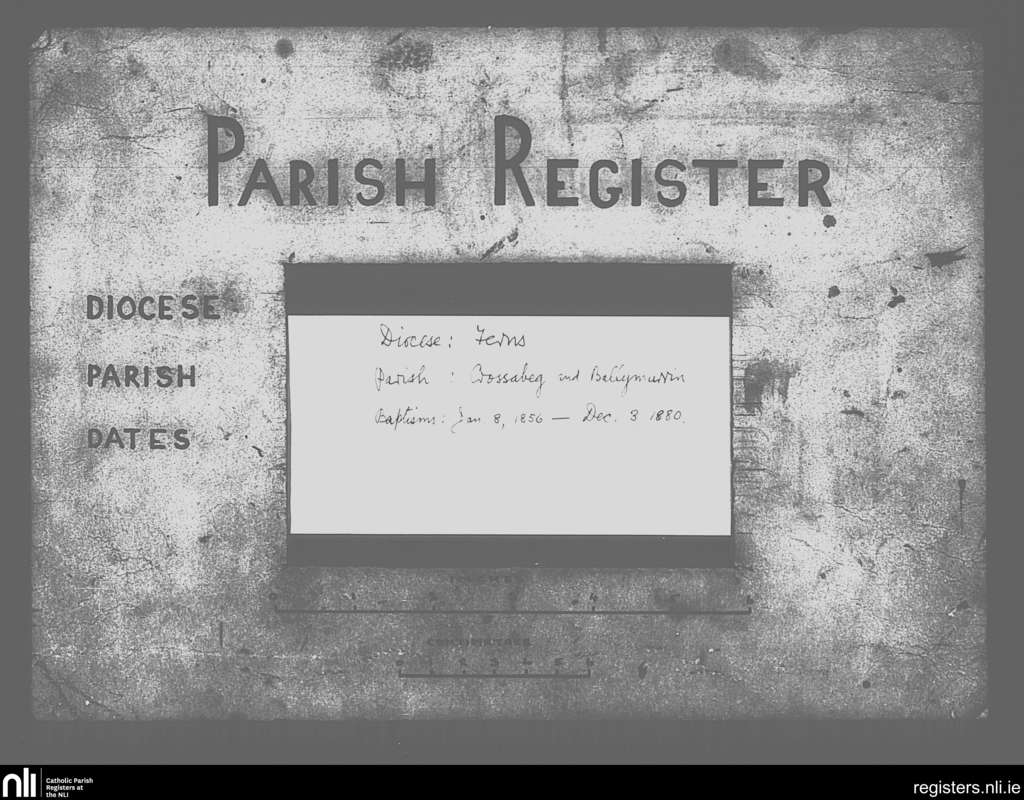 PARISH REGISTER
DIOCESE
PARISH
DATES
Diocese: Ferns
Parish : Crossabeg and Ballymurrin
Baptisms: Jan 8, 1856 — Dec. 3 1880.
INCHES
CENTIMETRES
nli
Catholic Parish
Registers at
the NLI
registers.nli.ie